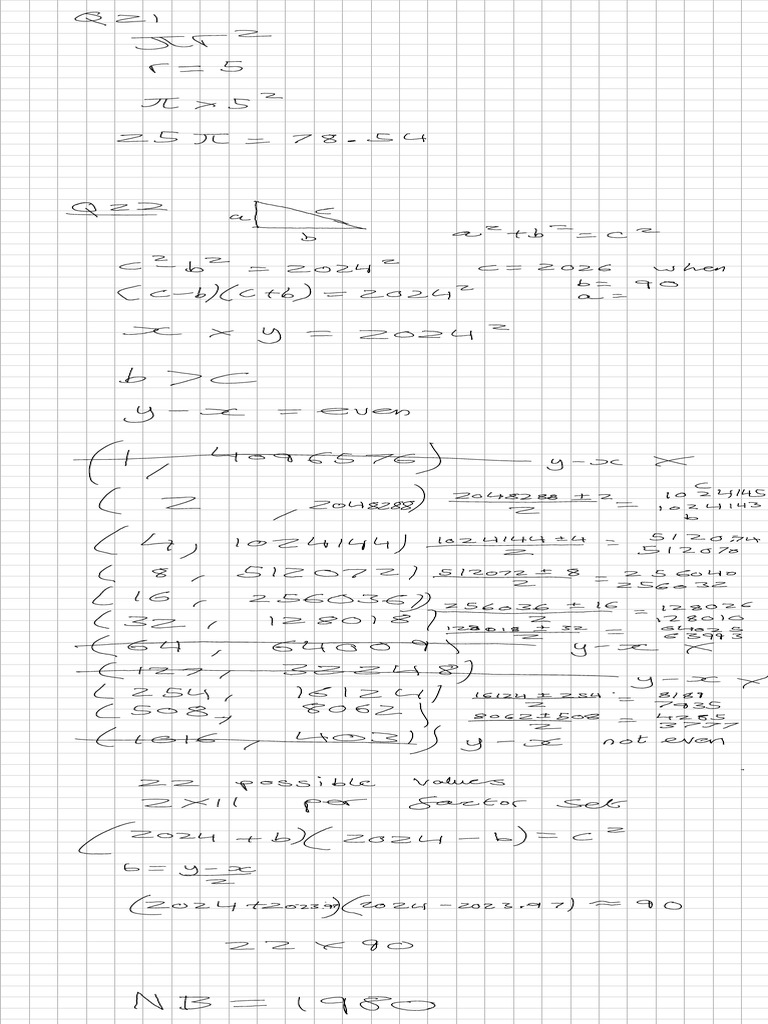 Q21
πr²
r = 5
π × 5²
25π = 78.54
Q22
a c b
a² + b² = c²
c² - b² = 2024² c = 2026 when
(c-b)(c+b) = 2024² b = 90
a =
x × y = 2024²
b > c
y - x = even
(1, 4096576) y-x ×
(2, 2048288) (2048288 ± 2)/2 = c 1024145 1024143 b
(4, 1024144) (1024144 ± 4)/2 = 512074 512070
(8, 512072) (512072 ± 8)/2 = 256040 256032
(16, 256036) (256036 ± 16)/2 = 128026 128010
(32, 128018) (128018 ± 32)/2 = 64025 63993
(64, 64009) y-x ×
(127, 32248) y-x ×
(254, 16124) (16124 ± 254)/2 = 8189 7935
(508, 8062) (8062 ± 508)/2 = 4285 3777
(1016, 4031) y-x not even
22 possible values
2×11 per factor set
(2024 + b)(2024 - b) = c²
b = (y-x)/2
(2024 + 2023.97)(2024 - 2023.97) ≈ 90
22 × 90
NB = 1980